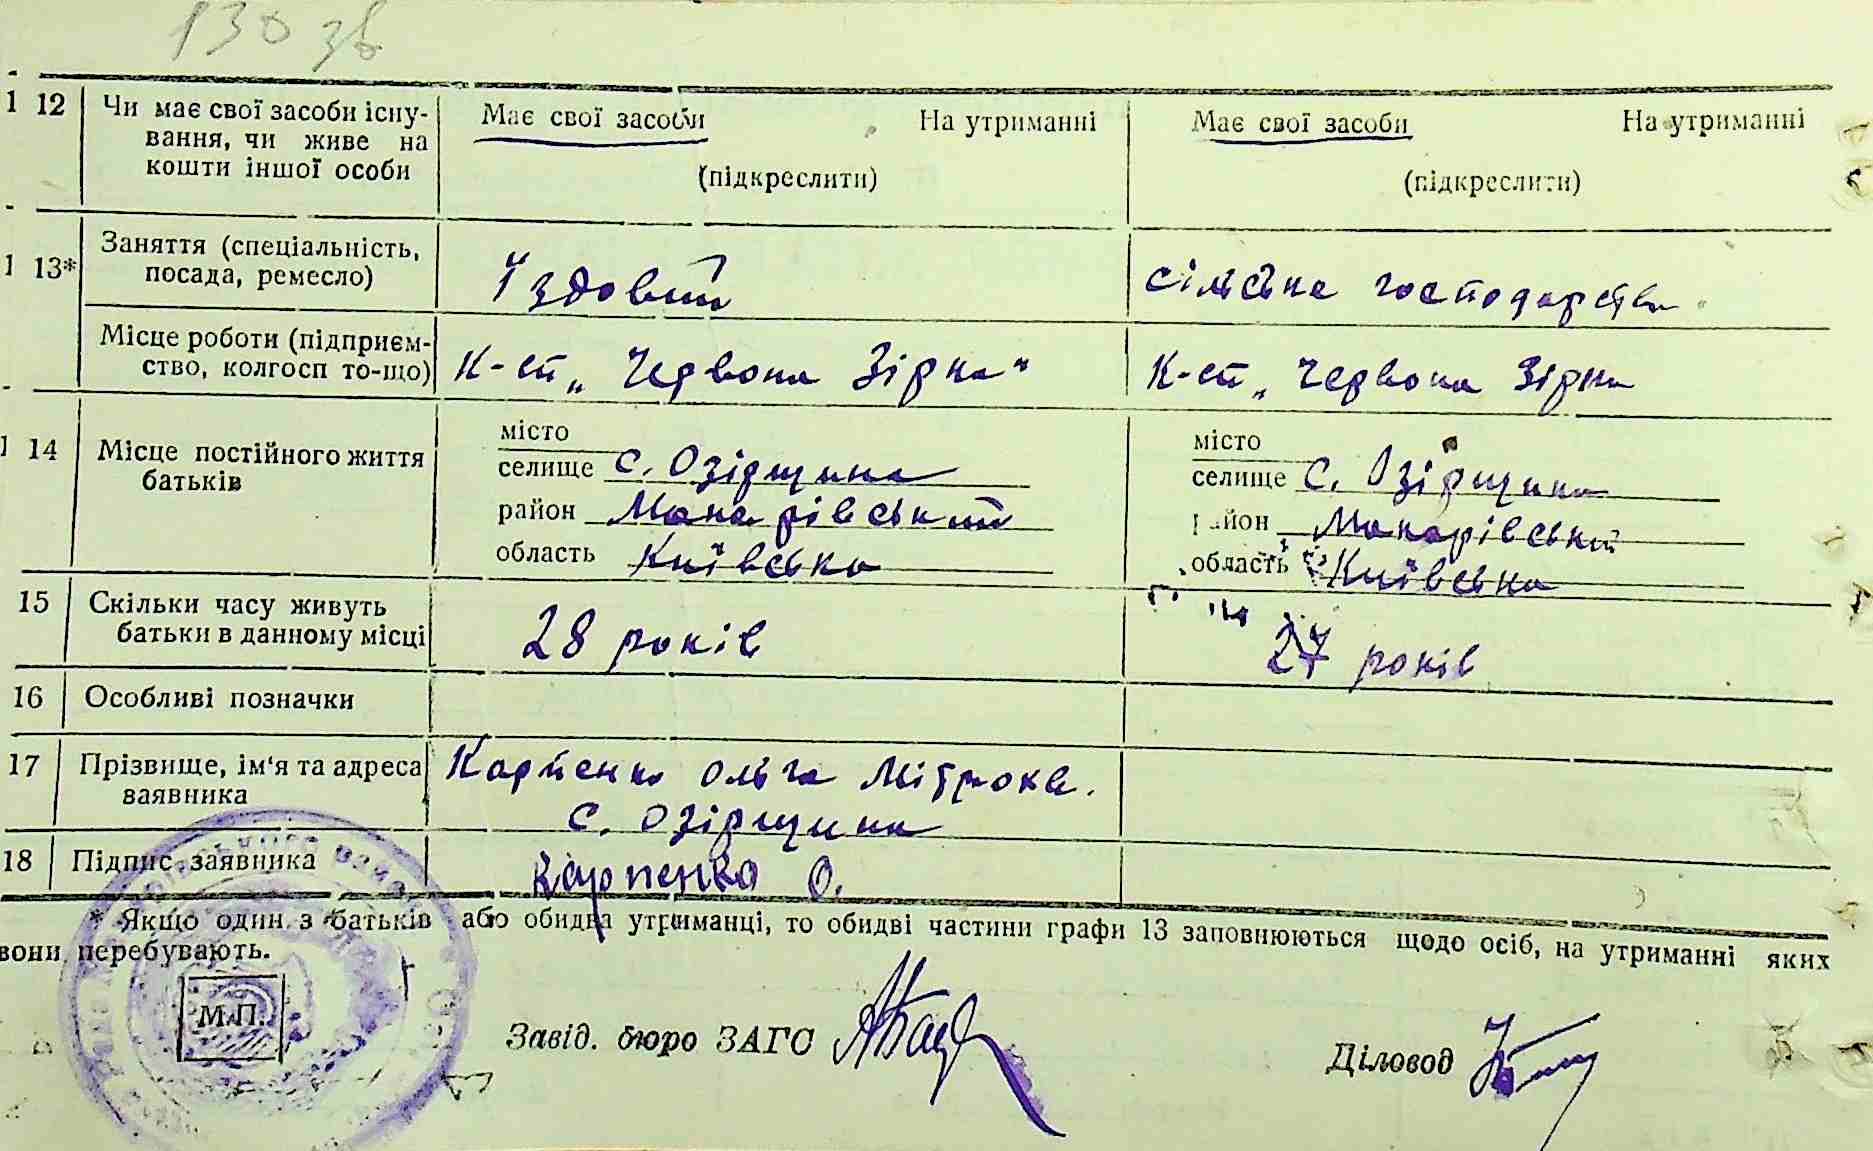 130 зв
12 Чи має свої засоби існу- Має свої засоби На утриманні Має свої засоби На утриманні
вання, чи живе на
кошти іншої особи (підкреслити) (підкреслити)
13* Заняття (спеціальність,
посада, ремесло) Їздовий сільське господарство
Місце роботи (підприєм-
ство, колгосп то-що) К-сп „Червона Зірка" К-сп „Червона Зірка
14 Місце постійного життя
батьків
місто місто
селище с. Озірщина селище с. Озірщина
район Макарівський район Макарівський
область Київська область Київська
15 Скільки часу живуть
батьки в данному місці 28 років 27 років
16 Особливі позначки
17 Прізвище, ім'я та адреса Карпенко Ольга Мітрохв.
заявника с. Озірщина
18 Підпис заявника Карпенко О.
* Якщо один з батьків або обидва утриманці, то обидві частини графи 13 заповнюються щодо осіб, на утриманні яких
вони перебувають.
М.П.
Завід. бюро ЗАГС Діловод